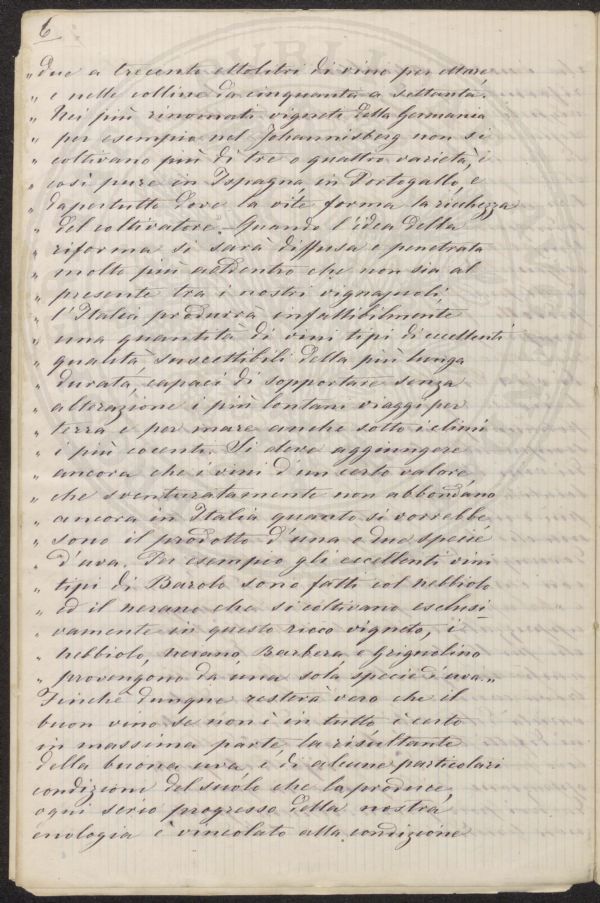 6
„ due a trecento ettolitri di vino per ettare
„ e nelle colline da cinquanta a settanta.
„ Nei più rinomati vigneti della Germania
„ per esempio nel Johannisberg non si
„ coltivano più di tre o quattro varietà, è
„ così pure in Ispagna in Portogallo, e
„ dapertutto dove la vite forma la richezza
„ del coltivatore. Quando l'idea della
„ riforma si sarà diffusa e penetrata
„ molto più addentro che non sia al
„ presente tra i nostri vignajuoli,
„ l'Italia produrrà infallibilmente
„ una quantità di vini tipi di eccellenti
„ qualità suscettibili della più lunga
„ durata, capaci di sopportare senza
„ alterazione i più lontani viaggi per
„ terra e per mare anche sotto i climi
„ i più cocenti. Si deve aggiungere
„ ancora che i vini d'un certo valore
„ che sventuratamente non abbondano
„ ancora in Italia quanto si vorrebbe,
„ sono il prodotto d'una o due specie
„ d'uva. Per esempio gli eccellenti vini
„ tipi di Barolo sono fatti col nebbiolo
„ ed il nerano che si coltivano esclusi
„ vamente in questo ricco vigneto, i
„ nebbiolo, nerano, Barbera e Grignolino
„ provengono da una sola specie d'uva.„
Finchè dunque resterà vero che il
buon vino se non è in tutto è certo
in massima parte, la risultante
della buona uva e di alcune particolari
condizioni del suolo che la produce,
ogni serio progresso della nostra
enologia è vincolato alla condizione